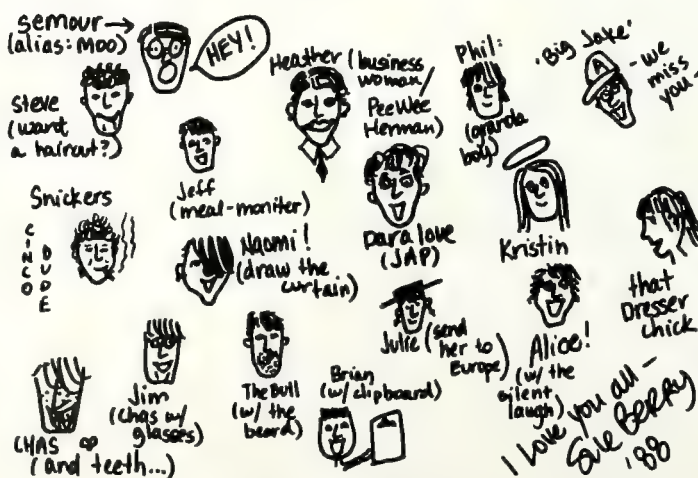 Semour →
(alias: Moo)
HEY!
Heather (business
woman/
PeeWee
Herman)
Phil:
(granola
boy)
'Big Jake'
A
- we
miss
you -
Steve
(want
a haircut?)
Jeff
(meal-moniter)
Snickers
CINCO
DUDE
Naomi!
(draw the
curtain)
Dara love
(JAP)
Kristin
that
Dresser
chick
Julie (send
her to
Europe)
Alice!
(w/ the
silent
laugh)
CHAS ∞
(and teeth...)
Jim
(chas w/
glasses)
The Bull
(w/ the
beard)
Brian
(w/ clipboard)
I Love you all -
BERRY
'88